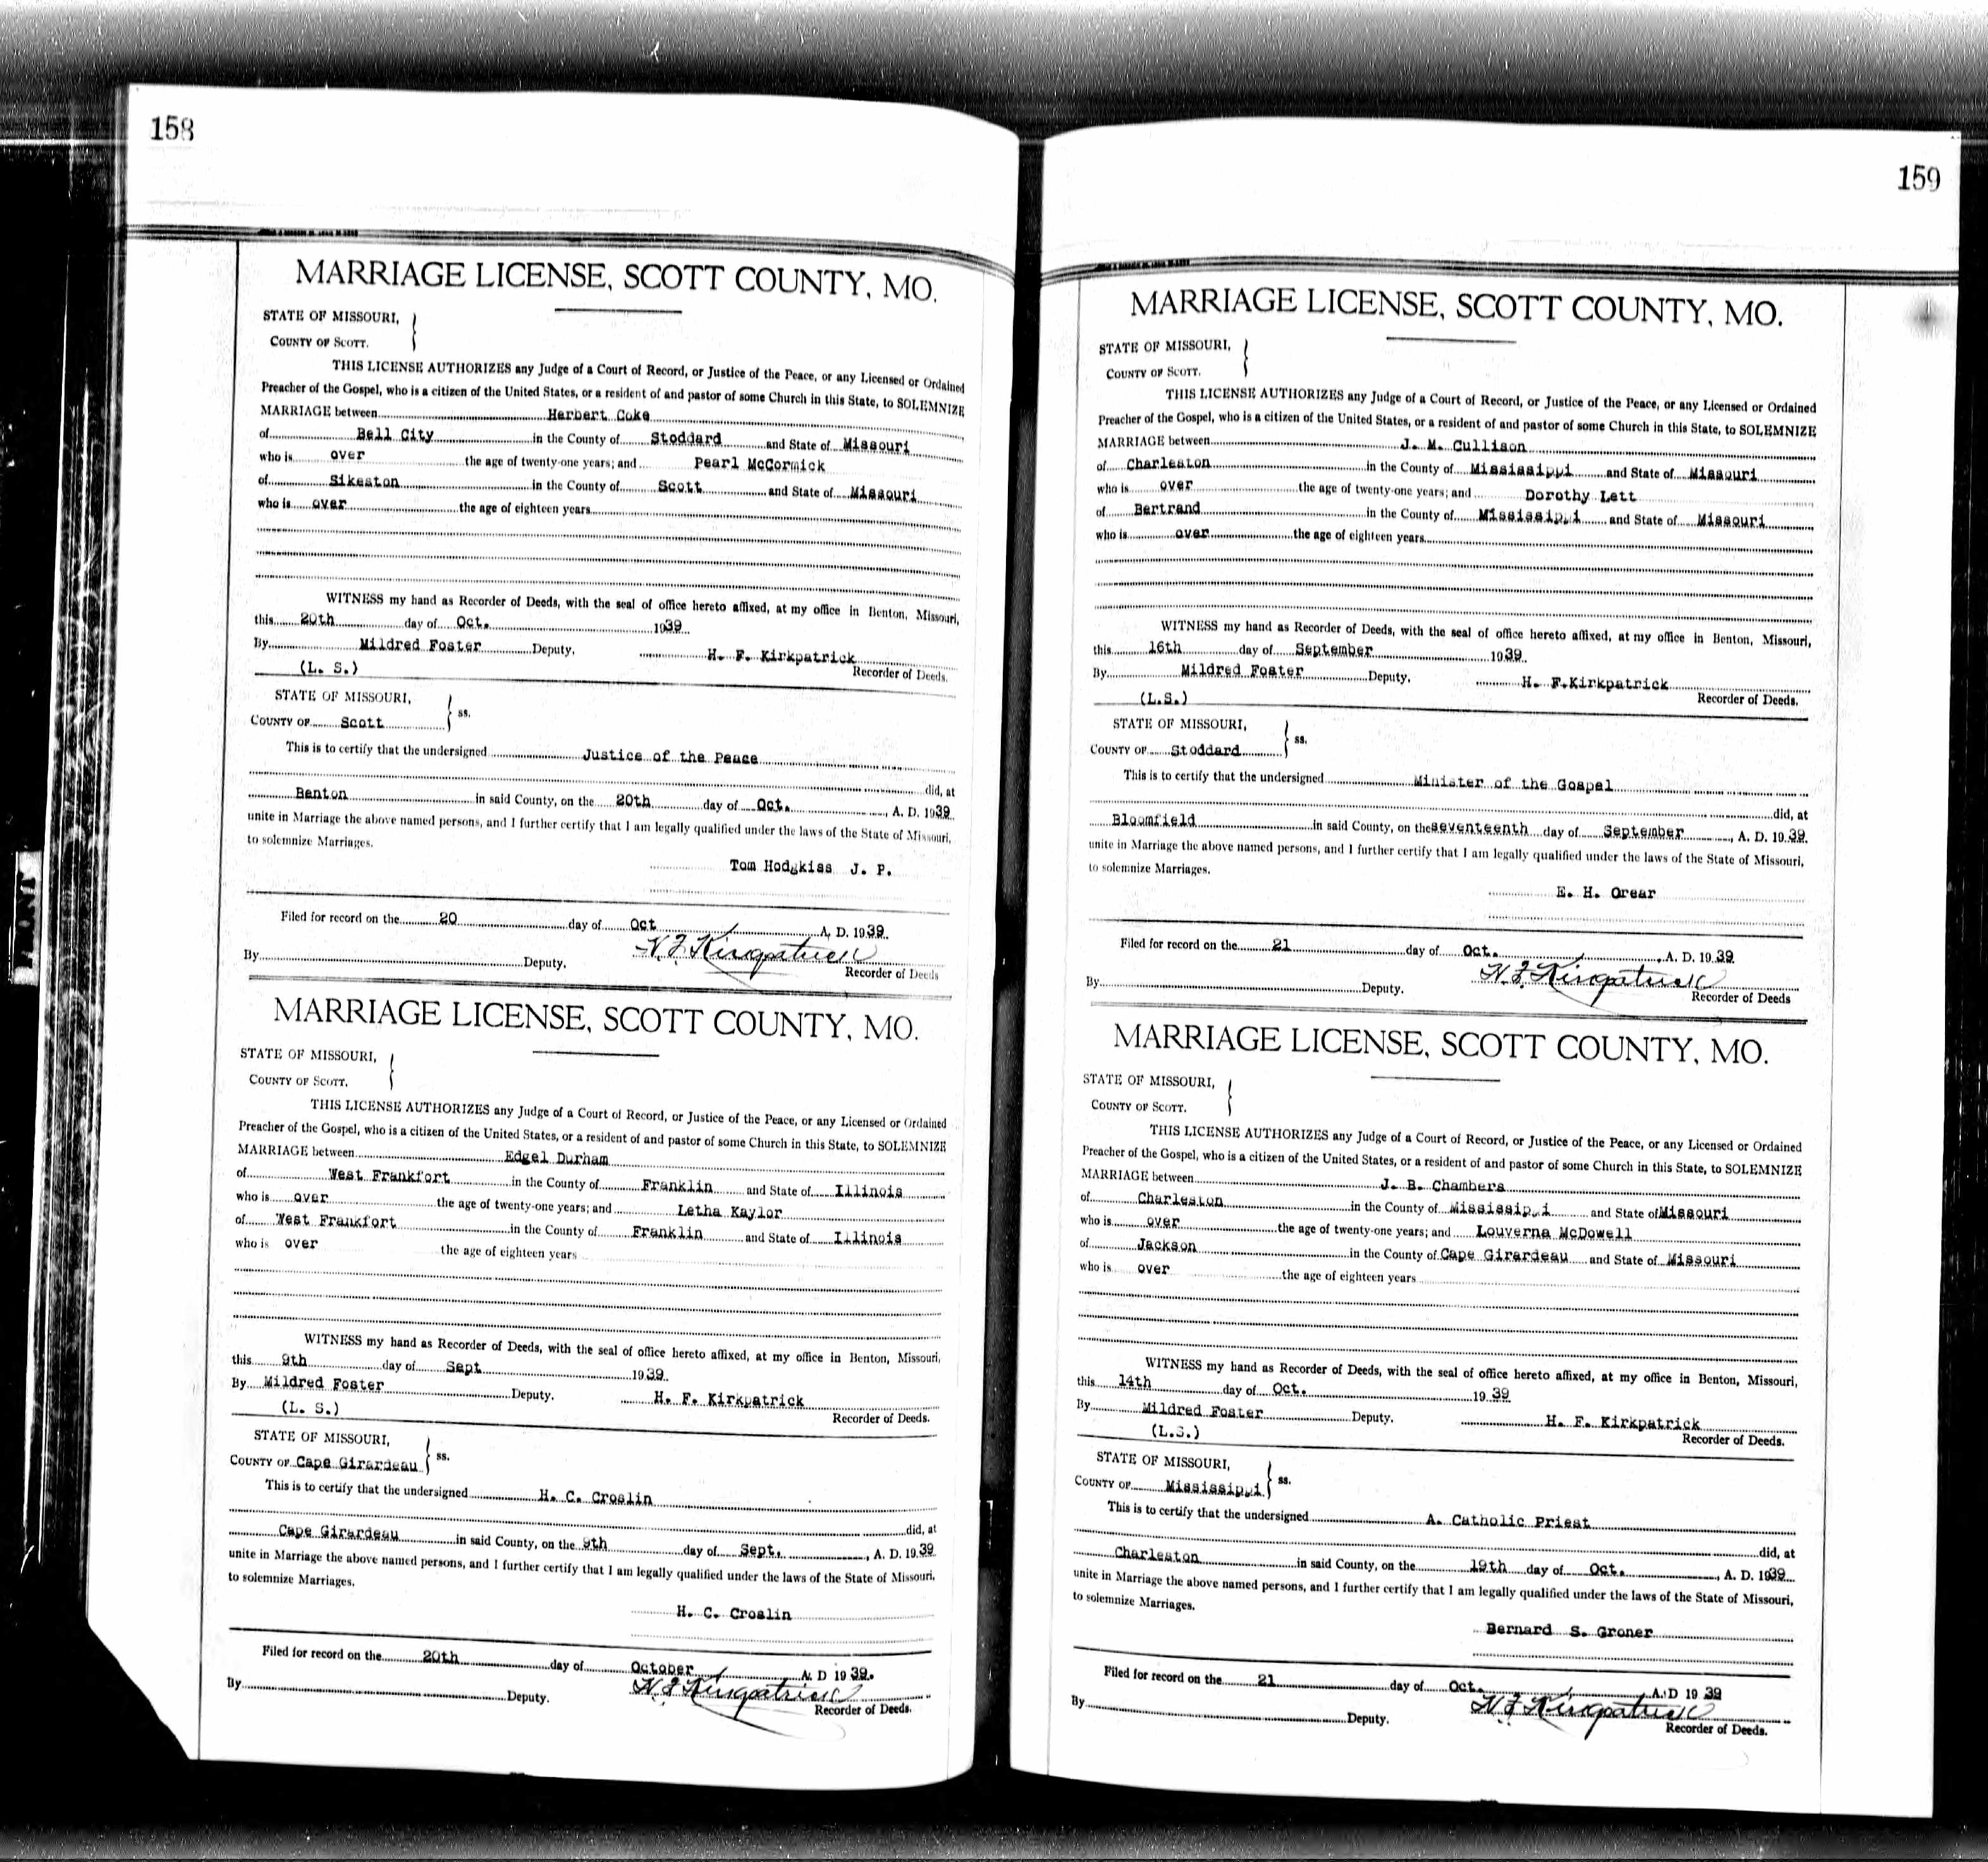 158
MARRIAGE LICENSE, SCOTT COUNTY, MO.
STATE OF MISSOURI,
COUNTY OF SCOTT.
THIS LICENSE AUTHORIZES any Judge of a Court of Record, or Justice of the Peace, or any Licensed or Ordained
Preacher of the Gospel, who is a citizen of the United States, or a resident of and pastor of some Church in this State, to SOLEMNIZE
MARRIAGE between Herbert Coke
of Bell City in the County of Stoddard and State of Missouri
who is over the age of twenty-one years; and Pearl McCormick
of Sikeston in the County of Scott and State of Missouri
who is over the age of eighteen years
WITNESS my hand as Recorder of Deeds, with the seal of office hereto affixed, at my office in Benton, Missouri,
this 20th day of Oct. 1939
By Mildred Foster Deputy. H. F. Kirkpatrick
(L. S.) Recorder of Deeds.
STATE OF MISSOURI,
COUNTY OF Scott ss.
This is to certify that the undersigned Justice of the Peace
did, at
Benton in said County, on the 20th day of Oct. A. D. 1939
unite in Marriage the above named persons, and I further certify that I am legally qualified under the laws of the State of Missouri,
to solemnize Marriages.
Tom Hodgkiss J. P.
Filed for record on the 20 day of Oct A. D. 1939.
H F Kirkpatrick
By Deputy. Recorder of Deeds
MARRIAGE LICENSE, SCOTT COUNTY, MO.
STATE OF MISSOURI,
COUNTY OF SCOTT.
THIS LICENSE AUTHORIZES any Judge of a Court of Record, or Justice of the Peace, or any Licensed or Ordained
Preacher of the Gospel, who is a citizen of the United States, or a resident of and pastor of some Church in this State, to SOLEMNIZE
MARRIAGE between Edgel Durham
of West Frankfort in the County of Franklin and State of Illinois
who is over the age of twenty-one years; and Letha Kaylor
of West Frankfort in the County of Franklin and State of Illinois
who is over the age of eighteen years
WITNESS my hand as Recorder of Deeds, with the seal of office hereto affixed, at my office in Benton, Missouri,
this 9th day of Sept 1939.
By Mildred Foster Deputy. H. F. Kirkpatrick
(L. S.) Recorder of Deeds.
STATE OF MISSOURI,
COUNTY OF Cape Girardeau ss.
This is to certify that the undersigned H. C. Croslin
did, at
Cape Girardeau in said County, on the 9th day of Sept. , A. D. 1939
unite in Marriage the above named persons, and I further certify that I am legally qualified under the laws of the State of Missouri,
to solemnize Marriages.
H. C. Croslin
Filed for record on the 20th day of October A. D 1939.
H F Kirkpatrick
By Deputy. Recorder of Deeds.
159
MARRIAGE LICENSE, SCOTT COUNTY, MO.
STATE OF MISSOURI,
COUNTY OF SCOTT.
THIS LICENSE AUTHORIZES any Judge of a Court of Record, or Justice of the Peace, or any Licensed or Ordained
Preacher of the Gospel, who is a citizen of the United States, or a resident of and pastor of some Church in this State, to SOLEMNIZE
MARRIAGE between J. M. Cullison
of Charleston in the County of Mississippi and State of Missouri
who is over the age of twenty-one years; and Dorothy Lett
of Bertrand in the County of Mississippi and State of Missouri
who is over the age of eighteen years
WITNESS my hand as Recorder of Deeds, with the seal of office hereto affixed, at my office in Benton, Missouri,
this 16th day of September 1939.
By Mildred Foster Deputy. H. F.Kirkpatrick
(L.S.) Recorder of Deeds.
STATE OF MISSOURI,
COUNTY OF Stoddard ss.
This is to certify that the undersigned Minister of the Gospel
did, at
Bloomfield in said County, on the seventeenth day of September , A. D. 1939.
unite in Marriage the above named persons, and I further certify that I am legally qualified under the laws of the State of Missouri,
to solemnize Marriages.
E. H. Orear
Filed for record on the 21 day of Oct. , A. D. 1939
H. F. Kirkpatrick
By Deputy. Recorder of Deeds
MARRIAGE LICENSE, SCOTT COUNTY, MO.
STATE OF MISSOURI,
COUNTY OF SCOTT.
THIS LICENSE AUTHORIZES any Judge of a Court of Record, or Justice of the Peace, or any Licensed or Ordained
Preacher of the Gospel, who is a citizen of the United States, or a resident of and pastor of some Church in this State, to SOLEMNIZE
MARRIAGE between J. B. Chambers
of Charleston in the County of Mississippi and State of Missouri
who is over the age of twenty-one years; and Louverna McDowell
of Jackson in the County of Cape Girardeau and State of Missouri
who is over the age of eighteen years
WITNESS my hand as Recorder of Deeds, with the seal of office hereto affixed, at my office in Benton, Missouri,
this 14th day of Oct. 1939
By Mildred Foster Deputy. H. F. Kirkpatrick
(L.S.) Recorder of Deeds.
STATE OF MISSOURI,
COUNTY OF Mississippi ss.
This is to certify that the undersigned A. Catholic Priest
did, at
Charleston in said County, on the 19th day of Oct. , A. D. 1939
unite in Marriage the above named persons, and I further certify that I am legally qualified under the laws of the State of Missouri,
to solemnize Marriages.
Bernard S. Groner
Filed for record on the 21 day of Oct. A. D 1939
H. F. Kirkpatrick
By Deputy. Recorder of Deeds.